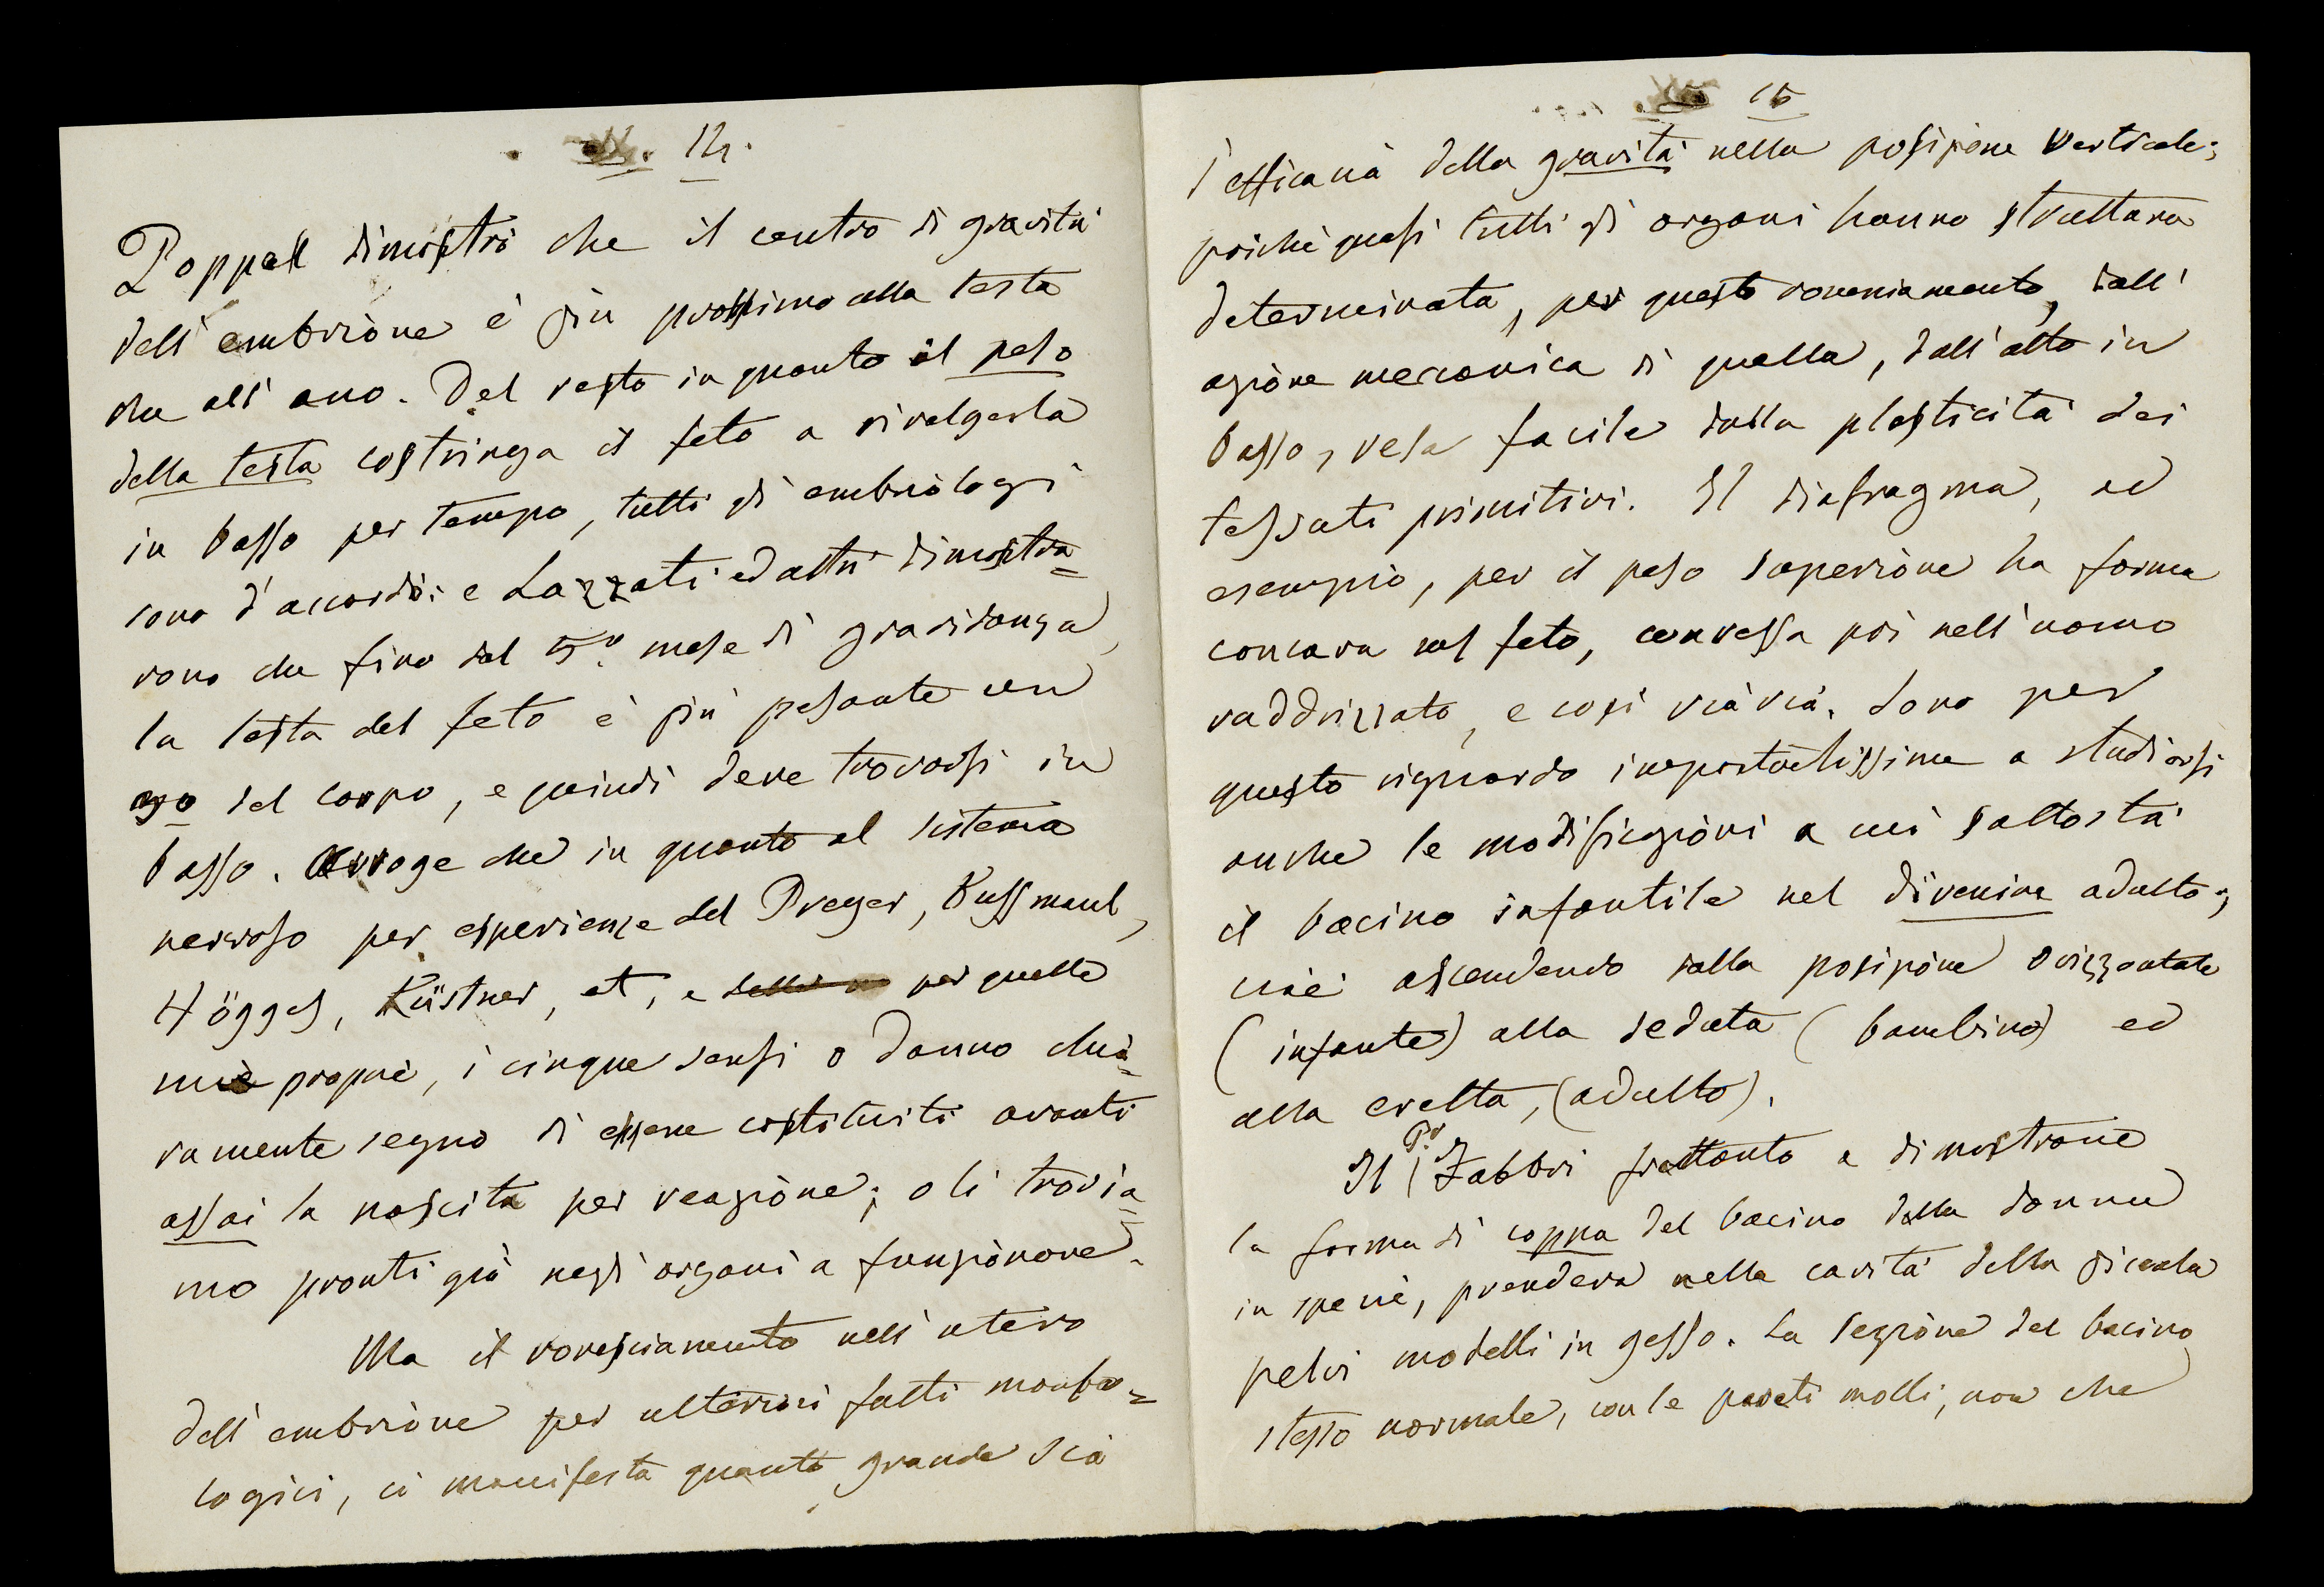 14.
Poppel dimostrò che il centro di gravità
dell'embrione è più prossimo alla testa
che all'ano. Del resto in quanto il peso
della testa costringa il feto a rivolgerla
in basso per tempo, tutti gli embriologi
sono d'accordo: e Lazzati ed altri dimostra=
rono che fino dal 5.º mese di gravidanza,
la testa del feto è più pesante
del corpo, e quindi deve trovarsi in
basso. Arroge che in quanto al sistema
nervoso per esperienze del Preyer, Kussmaul,
Högges, Küstner, et, e per quelle
mie proprie, i cinque sensi o danno chia=
ramente segno di essere costituiti avanti
assai la nascita per reazione; o li trovia=
mo pronti già negli organi a funzionare.
Ma il rovesciamento nell'utero
dell'embrione per ulteriori fatti morfo=
logici, ci manifesta quanto grande sia
15
l'efficacia della gravità nella posizione verticale;
poichè quasi tutti gli organi hanno struttura
determinata, per questo rovesciamento, dall'
azione meccanica di quella, dall'alto in
basso, resa facile dalla plasticità dei
tessuti primitivi. Il diafragma, ad
esempio, per il peso superiore ha forma
concava nel feto, convessa poi nell'uomo
raddrizzato, e così via via. Sono per
questo riguardo importantissime a studiarsi
anche le modificazioni a cui sottostà
il bacino infantile nel divenire adulto;
cioè ascendendo dalla posizione orizzontale
(infante) alla seduta (bambino) ed
alla eretta, (adulto).
Il P.r Fabbri frattanto a dimostrare
la forma di coppa del bacino della donna
in specie, prendeva nella cavità della piccola
pelvi modelli in gesso. La sezione del bacino
stesso normale, con le pareti molli, non che